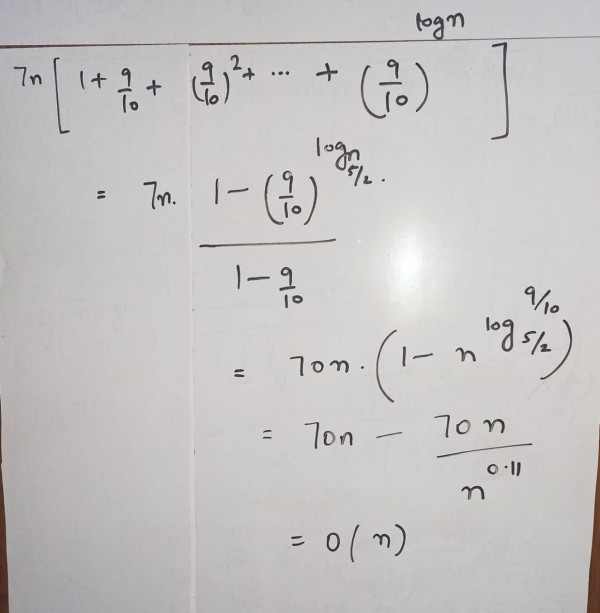 7n [ 1 + 9/10 + (9/10)^2 + ... + (9/10)^logn ]
= 7n. (1 - (9/10)^logn 5/2.) / (1 - 9/10)
= 70n. (1 - n^log 5/2 9/10)
= 70n - 70n / n^0.11
= O(n)